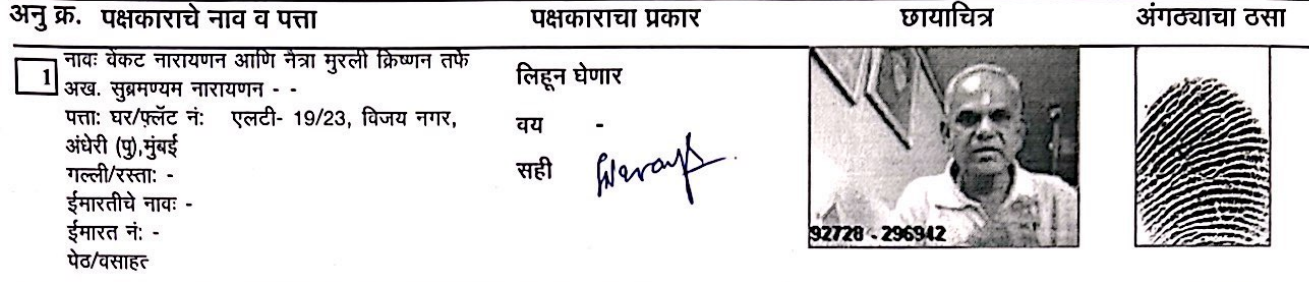 अनु क्र. पक्षकाराचे नाव व पत्ता पक्षकाराचा प्रकार छायाचित्र अंगठ्याचा ठसा
1
नावः वेंकट नारायणन आणि नैत्रा मुरली क्रिष्णन तर्फे
अख. सुब्रमण्यम नारायणन - -
पत्ता: घर/फ़्लॅट नं: एलटी- 19/23, विजय नगर,
अंधेरी (पु),मुंबई
गल्ली/रस्ता: -
ईमारतीचे नावः -
ईमारत नं: -
पेठ/वसाहत
लिहून घेणार
वय -
सही
92728 - 296942